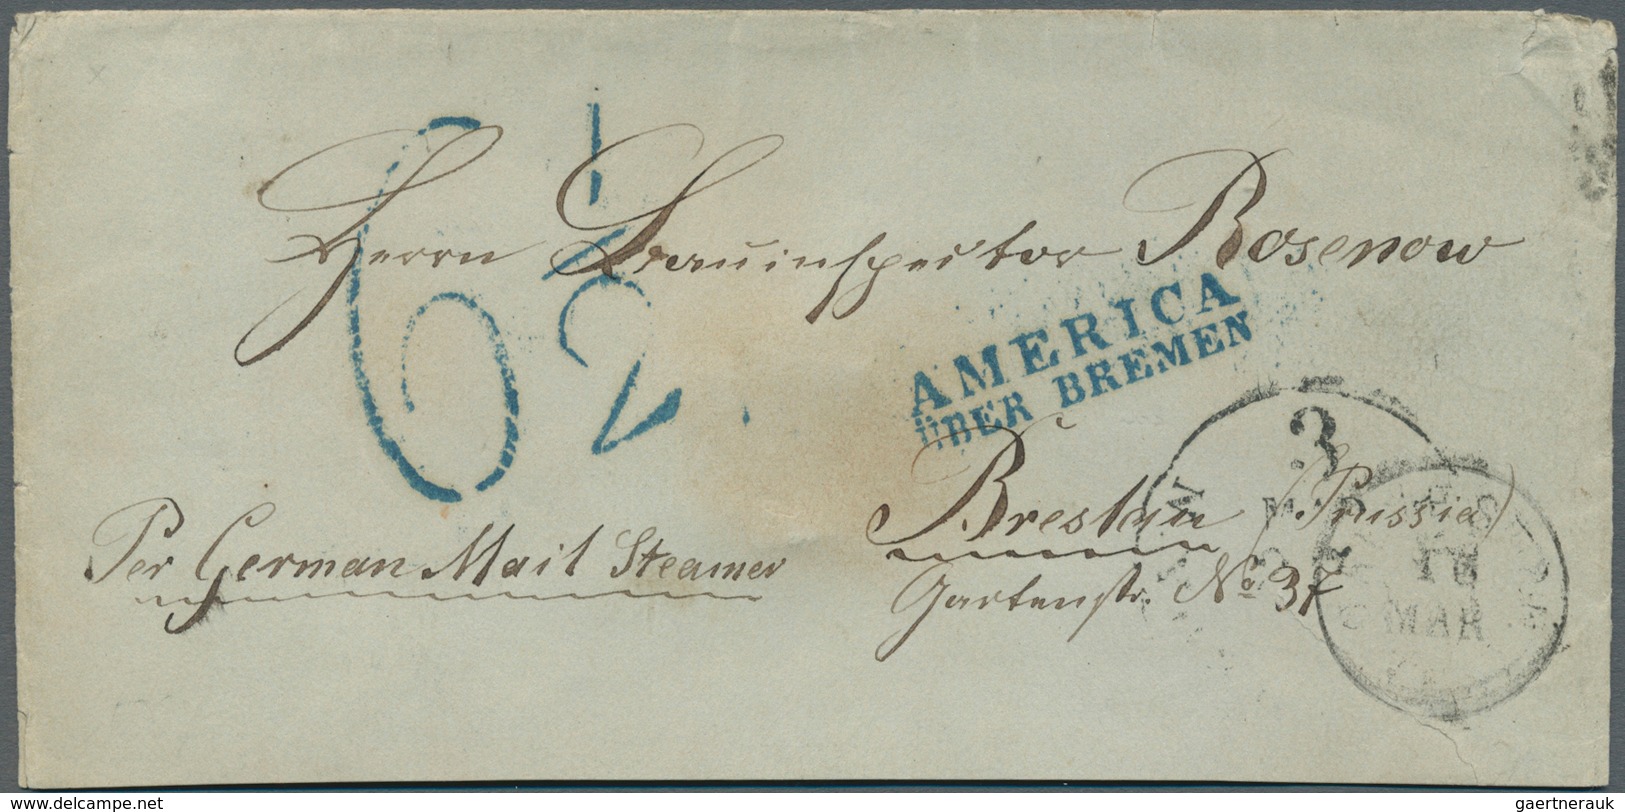 Herrn Bauinspector Rosenow
6 1/2
AMERICA
ÜBER BREMEN
Breslau (Prussia)
Per German Mail Steamer
Gartenstr. No. 37
3
MAR
delcampe.net
gaertnerauk